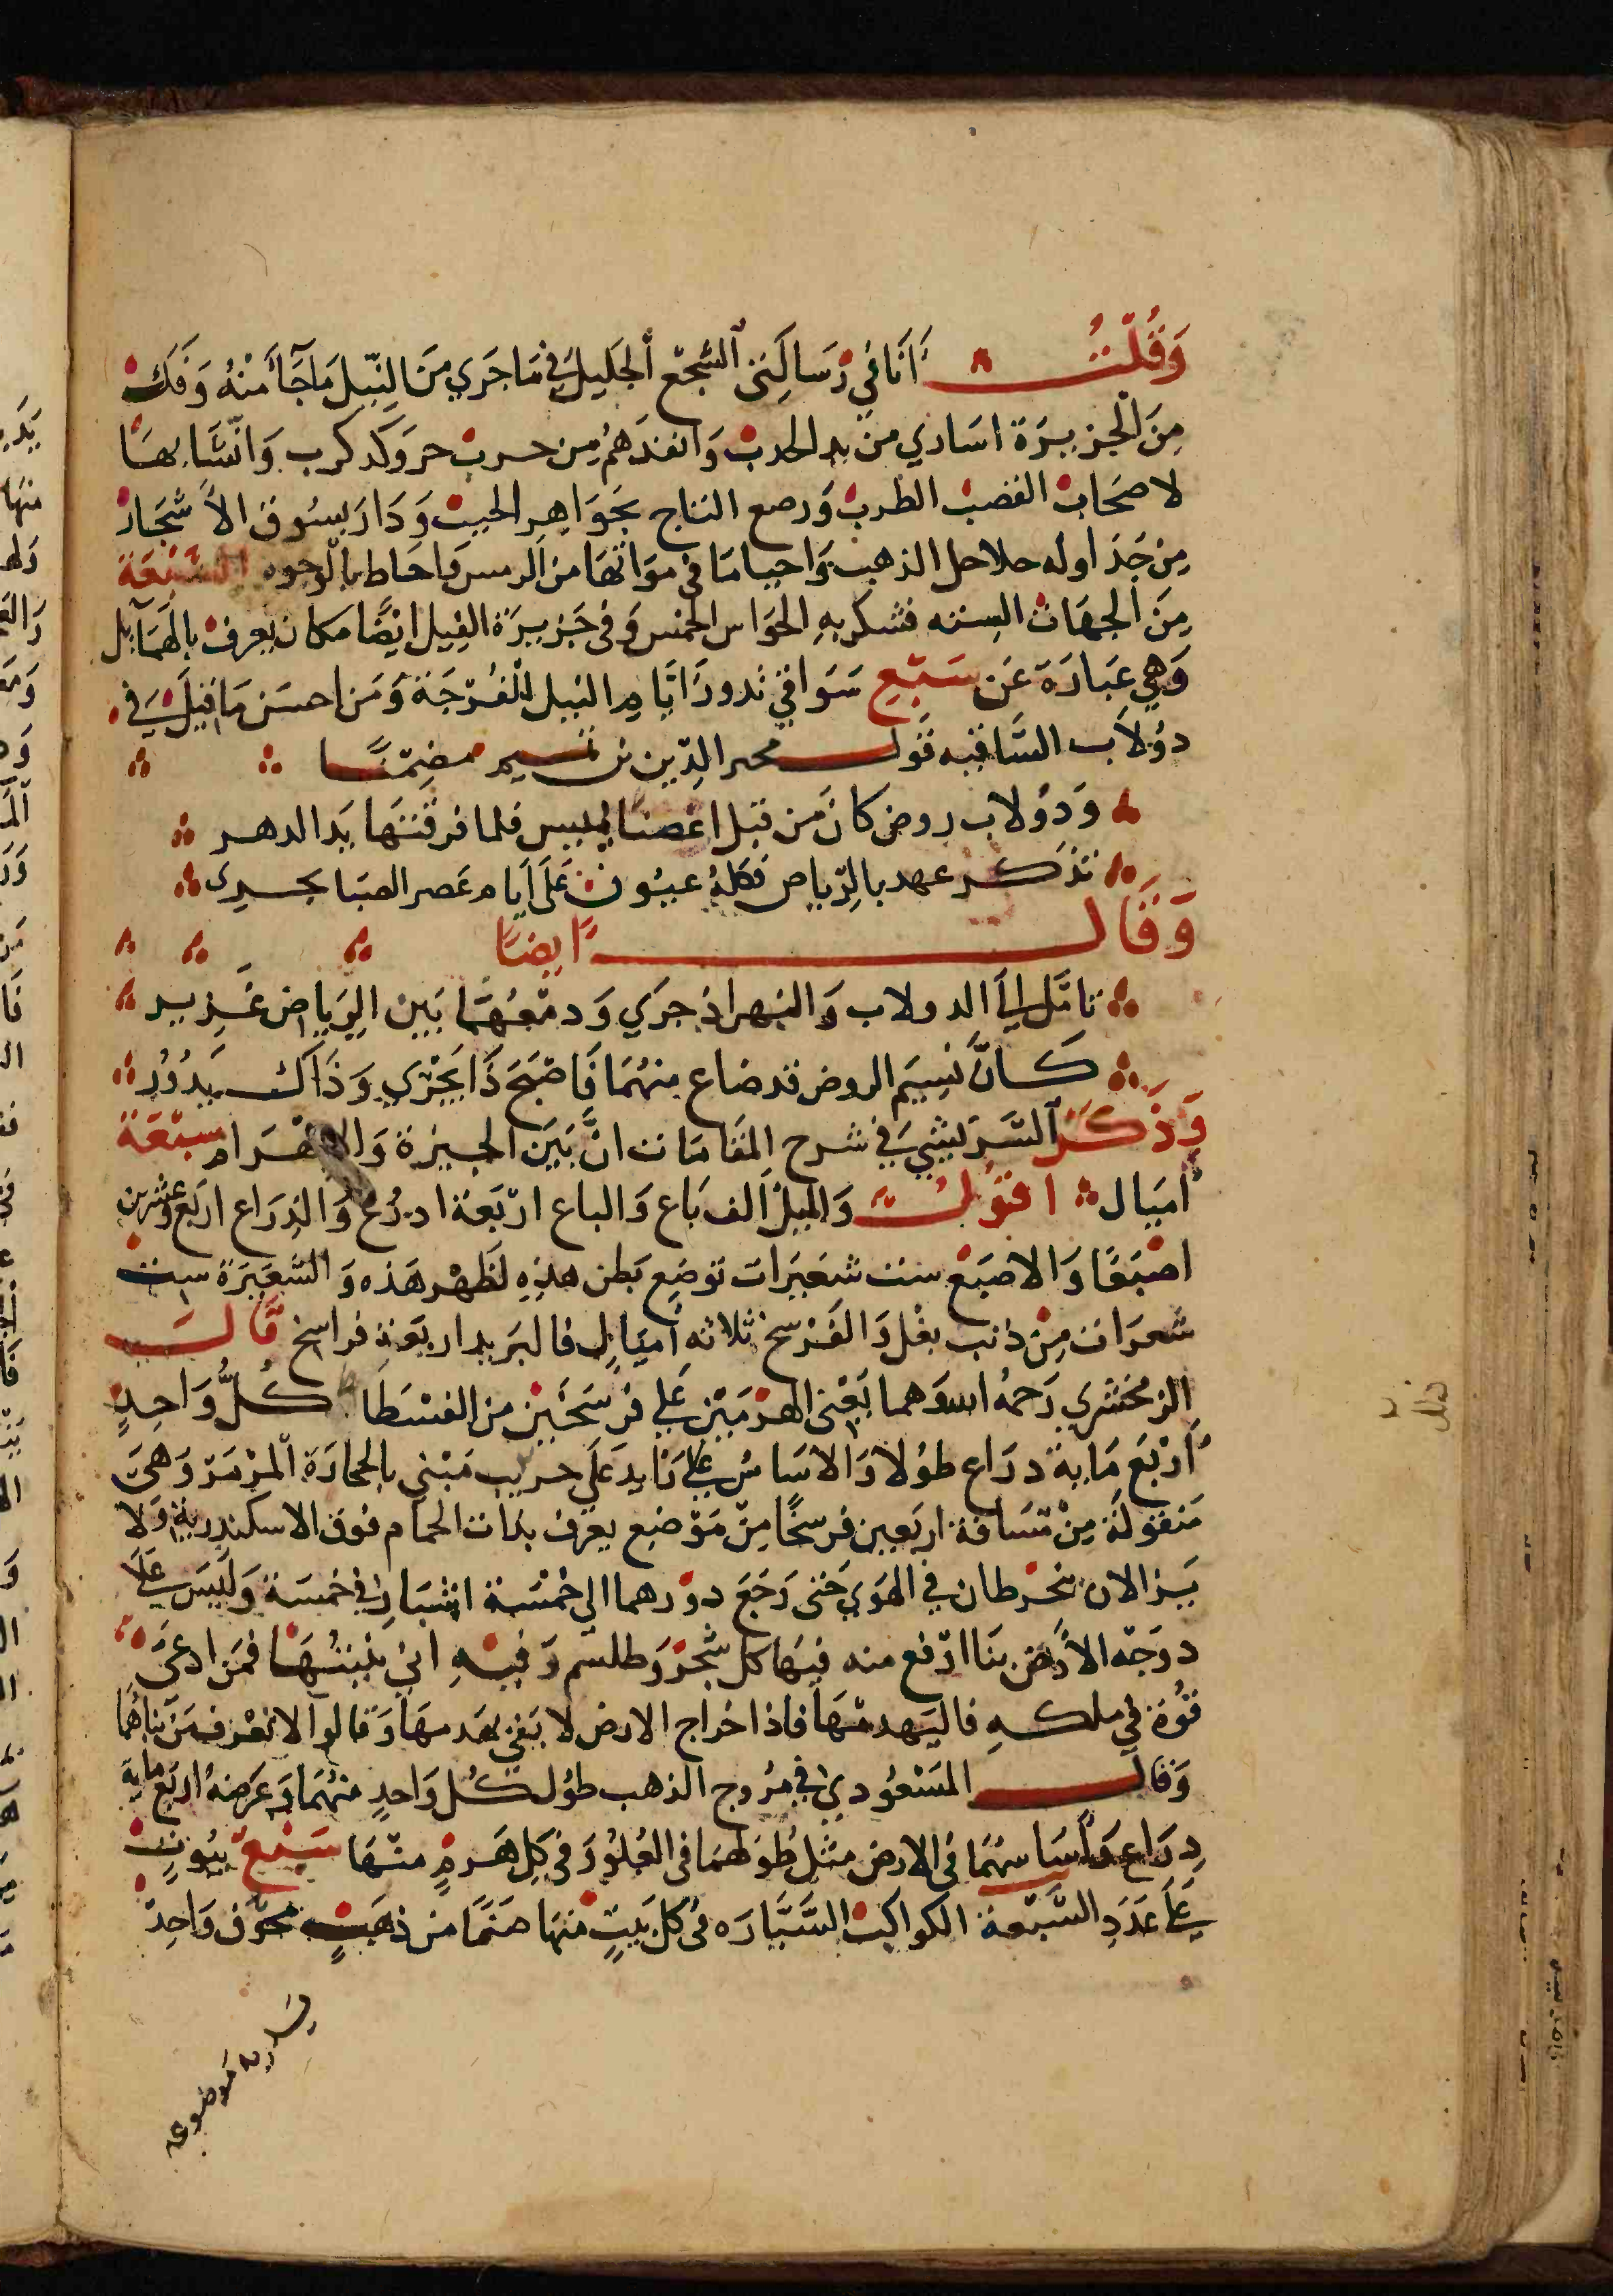 وَقُلْتُ اَنَا فِي رَسَالَتِي السَّجْع الجَليل في مَا جَرَي مِنَ النِّيل مَا جَآءَ مِنْهُ وَفَكَّ
مِنَ الْجَزيرَة اسَاري من يد الحدب وَانقذهُم مِن حرب حر وَكد كرب وَانْشَا بهَا
لاصحَاب القضب الطرب وَرصع التاج بجَوَاهِر الحبب وَدَار بسُوق الاشجَار
مِن جَدَاوله خلاخل الذهب وَاحيا مَا في مَوَاتهَا من الرمس وَاحَاط بالوجوه السَّبْعَة
مِنَ الجهَات الستة فشكر بهِ الحَوَاس الخمس وَفي جَزيرَة الفِيل ايضًا مكان يعرف بالهمَايل
وَهِي عِبَارَة عَن سَبْع سَوَاقي تدور ايَّام النيل للفُرْجَة وَمن احسَن مَا قيلَ في
دُولاب السَّاقيه قَول مجير الدّين بن تميم مضمّنًا
وَدُولاب روض كانَ من قبل اغصنًا تميس فلما فرقتهَا يَد الدهر
تذكر عهد بالرّياض فكلهُ عيُون عَلَى ايام عَصر الصبَا تجري
وَقَال ايضًا
تامَّل اليَ الدولاب وَالنهر اذ جرَي وَدمعُهُمَا بَين الرِيَاض غَزِير
كَانَّ نسِيَم الروض قد ضاع منهُمَا فَاصْبَحَ ذَا يَجْرِي وَذَاكَ يَدُوُر
وَذَكَرَ الشَّرِيشِيَ في شرح المقَامَات انَّ بَيَن الجيزة وَالاهْرَام سبْعَة
أميَال اقُولُ وَالميلُ الف بَاع وَالباع اربَعة ادرُع وَالذرَاع اربَع وعشرين
اصْبَعًا وَالاصبَع ست شعَيرَات تُوضع بَطن هَذِهِ لظَهْر هَذه وَالشعَيرَة ست
شعرَات مِنْ ذنب بغْل وَالفَرْسخ ثلاثه أميَال فالبَريد اربَعةِ فراسخ قَالَ
الزمخشري رَحمهُ الله وَهما يَعْني الهرْمَيْن عَلي فرْسَخَيْن من الفسْطَاط كُلُّ وَاحِدٍ
أرْبَعَ مَايةَ درَاع طوُلا وَالاسَاسُ عَلي زَايد عَلَي جريب مَبْني بالحجارَة المرْمَرْ وَهيَ
مَنقولَة مِنْ مَّسَافة اربَعين فرسخًا مِنّ مَوْضِع يعرف بذات الحمَام فوق الاسكندرية وَلا
يَزالان ينخرطان في الهوَي حَتى رَجَعَ دورهما الي خمْسَة اشبَار في خمسَة وَليَس عَلَي
دوَجه الأرْض بَنَا ارْفع منه فيَها كل سْحرْ وَطلسم وَفيهِ اني بنيتُهَا فمَن ادعَي
قُوَة في ملكهِ فاليَهدمْهَا فاذا خراج الارض لا يَفي بهَدمهَا وَقالوا لا نعْرف مَن بناهُمَا
وَقال المَسْعُودي في مرُوج الذهب طوُل كُل وَاحدٍ منهُمَا وَعَرضهُ اربَع ماية
دِرَاع وَأسَاسهُمَا في الارض مثل طوُلهمَا في العُلُوْ وَفي كل هَرمٍ منْهَا سَبْعَ بيُوتٍ
عَلَي عَدَد السَّبْعَة الكواكب السَّيَّارَه في كل بَيتٍ منهَا صَنمًا من ذهَبٍ مجَوَّف وَاحِدْ
موضوعه